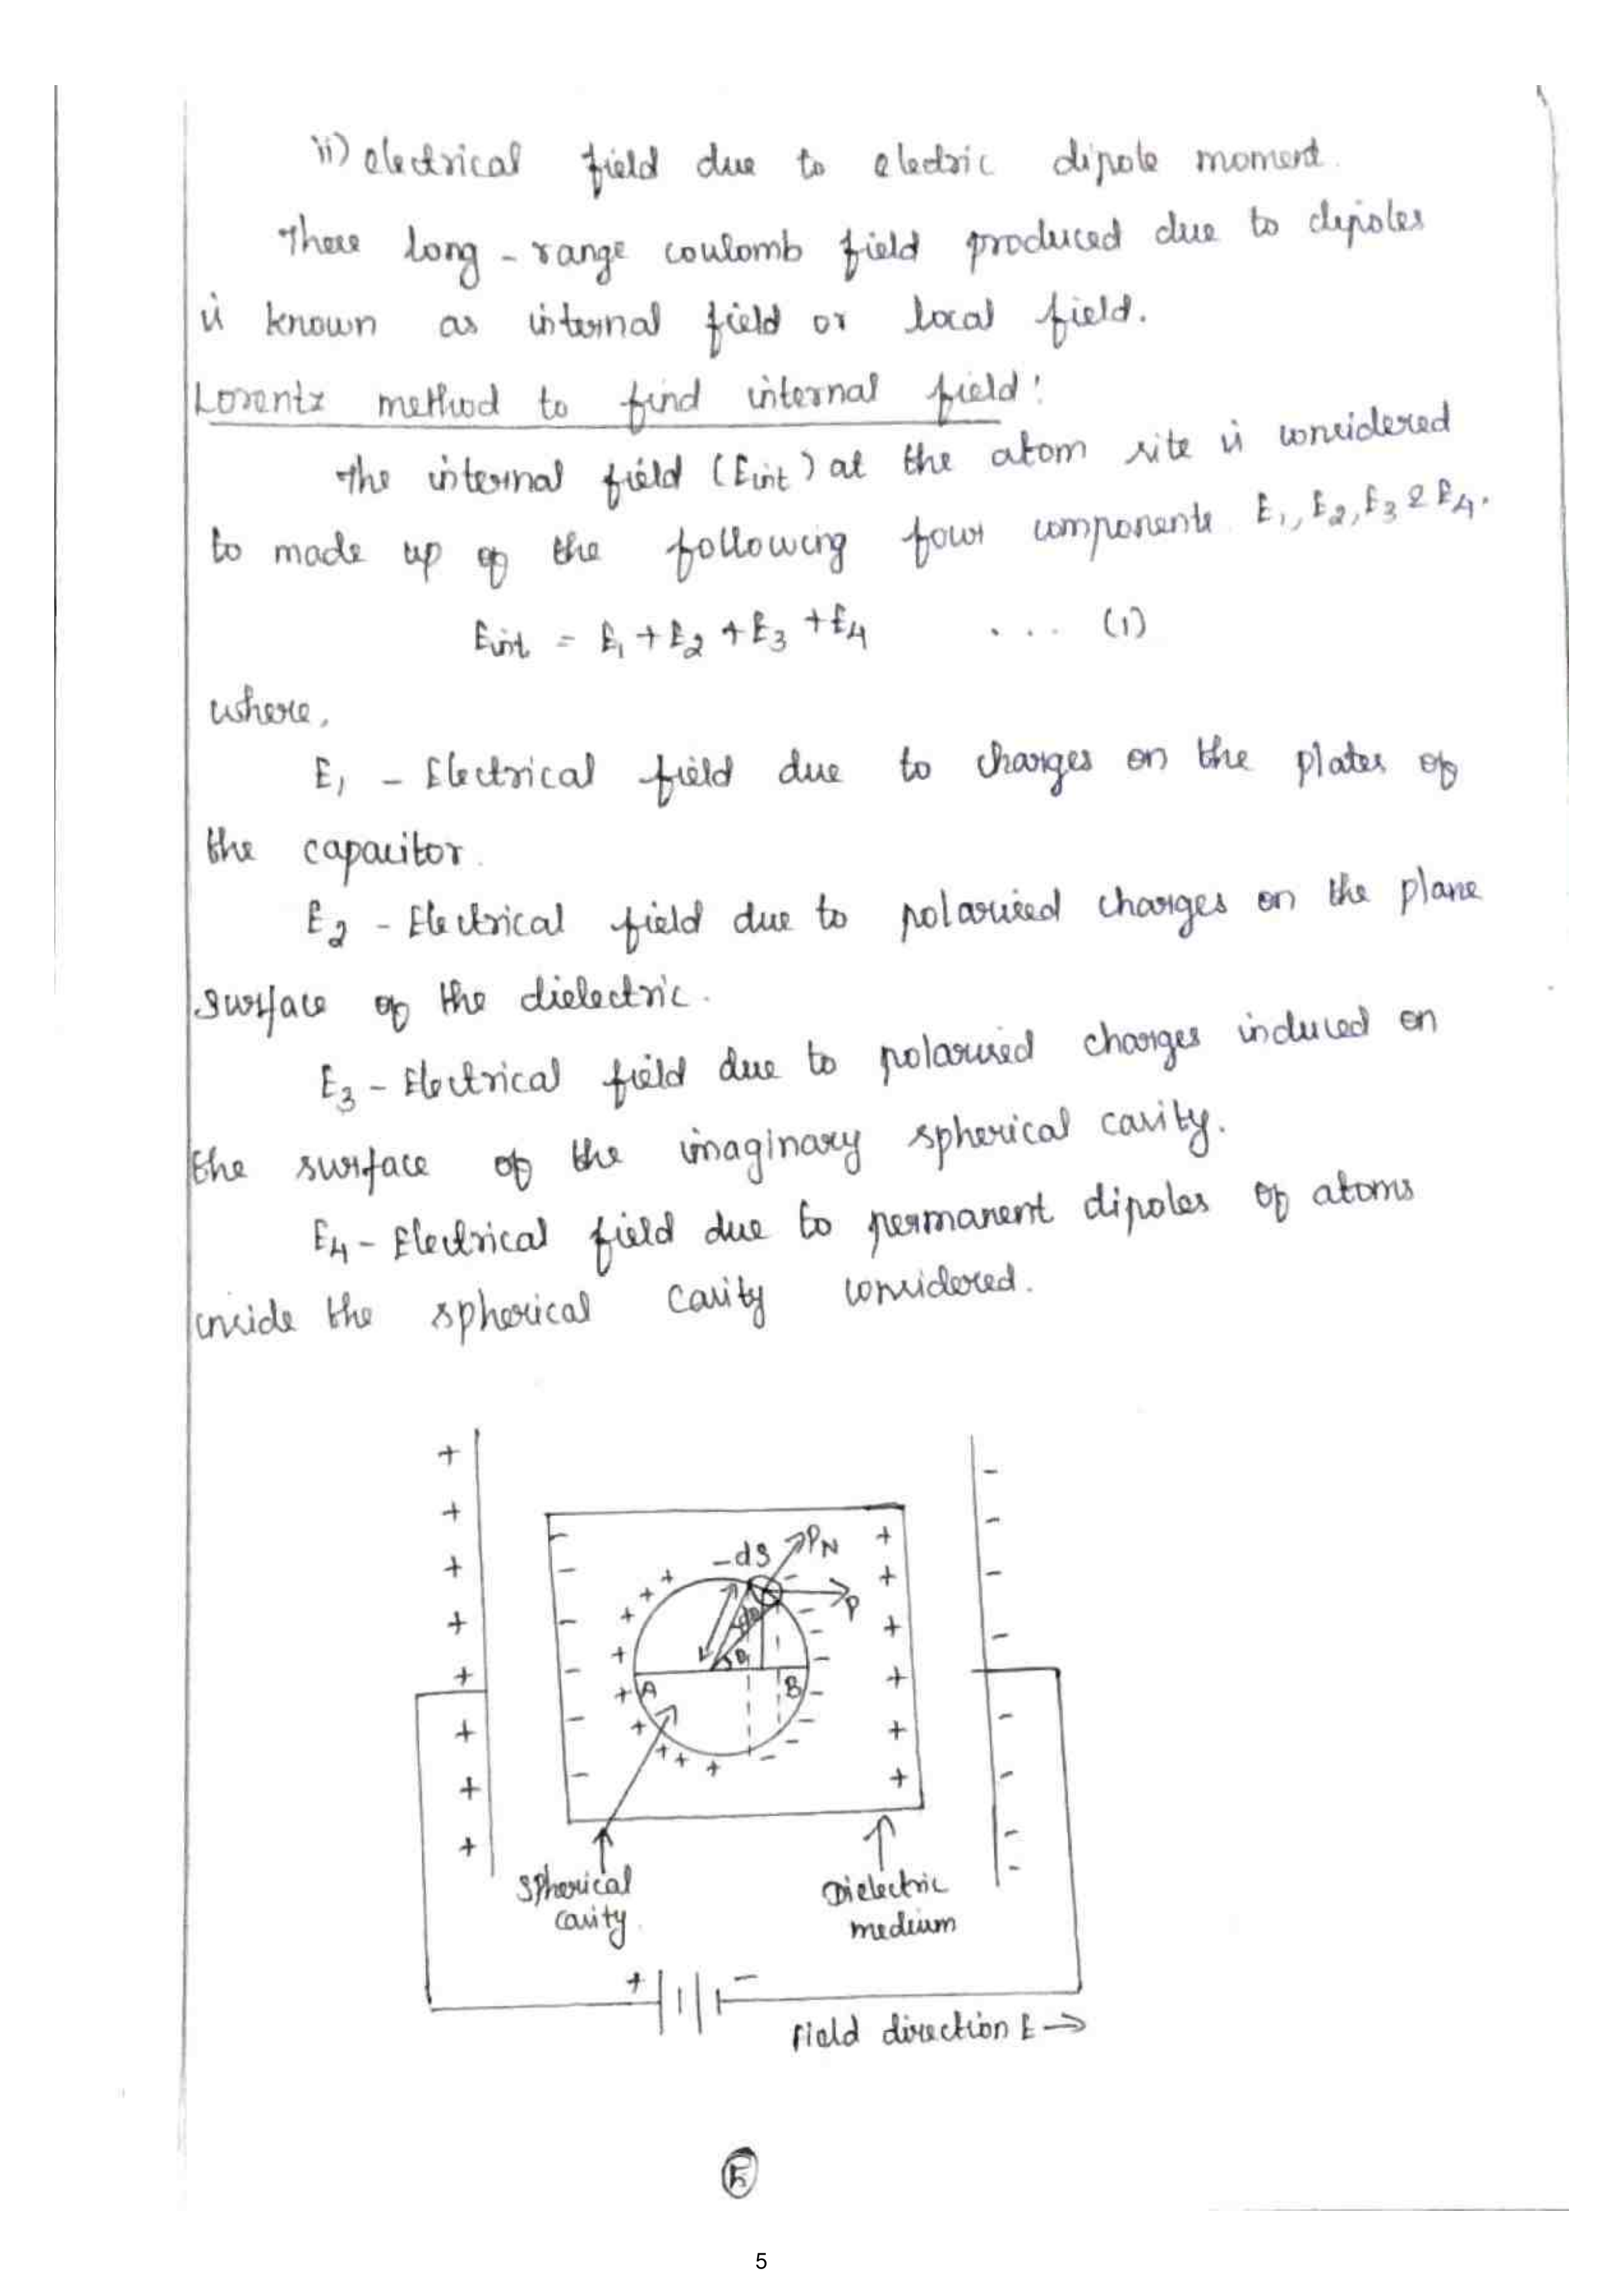 ii) electrical field due to electric dipole moment.
These long - range coulomb field produced due to dipoles
is known as internal field or local field.
Lorentz method to find internal field:
The internal field (Eint) at the atom site is considered
to made up of the following four components E1, E2, E3 & E4.
Eint = E1 + E2 + E3 + E4 ... (1)
where,
E1 - Electrical field due to charges on the plates of
the capacitor.
E2 - Electrical field due to polarised charges on the plane
surface of the dielectric.
E3 - Electrical field due to polarised charges induced on
the surface of the imaginary spherical cavity.
E4 - Electrical field due to permanent dipoles of atoms
inside the spherical cavity considered.
ds
PN
P
dθ
θ
A
B
Spherical
cavity.
Dielectric
medium
+ -
Field direction E →
5
5